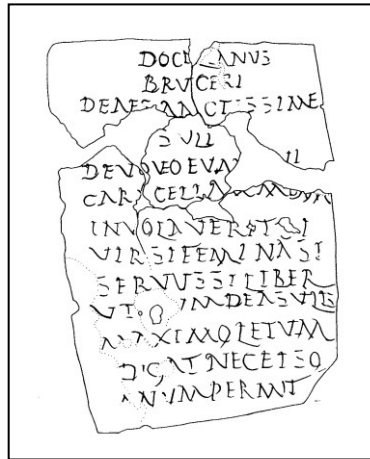 DOCI ANVS
BRVCERI
DEAE SANCTISSIME
SVLI
DEVOVEO EVM
CARACELLAM
INVOLAVERIT SI
VIR SI FEMINA SI
SERVVS SI LIBER
VT DEA SVLIS
MAXIMO LETVM
DIGAT NEC EI SO
NVM PERMIT